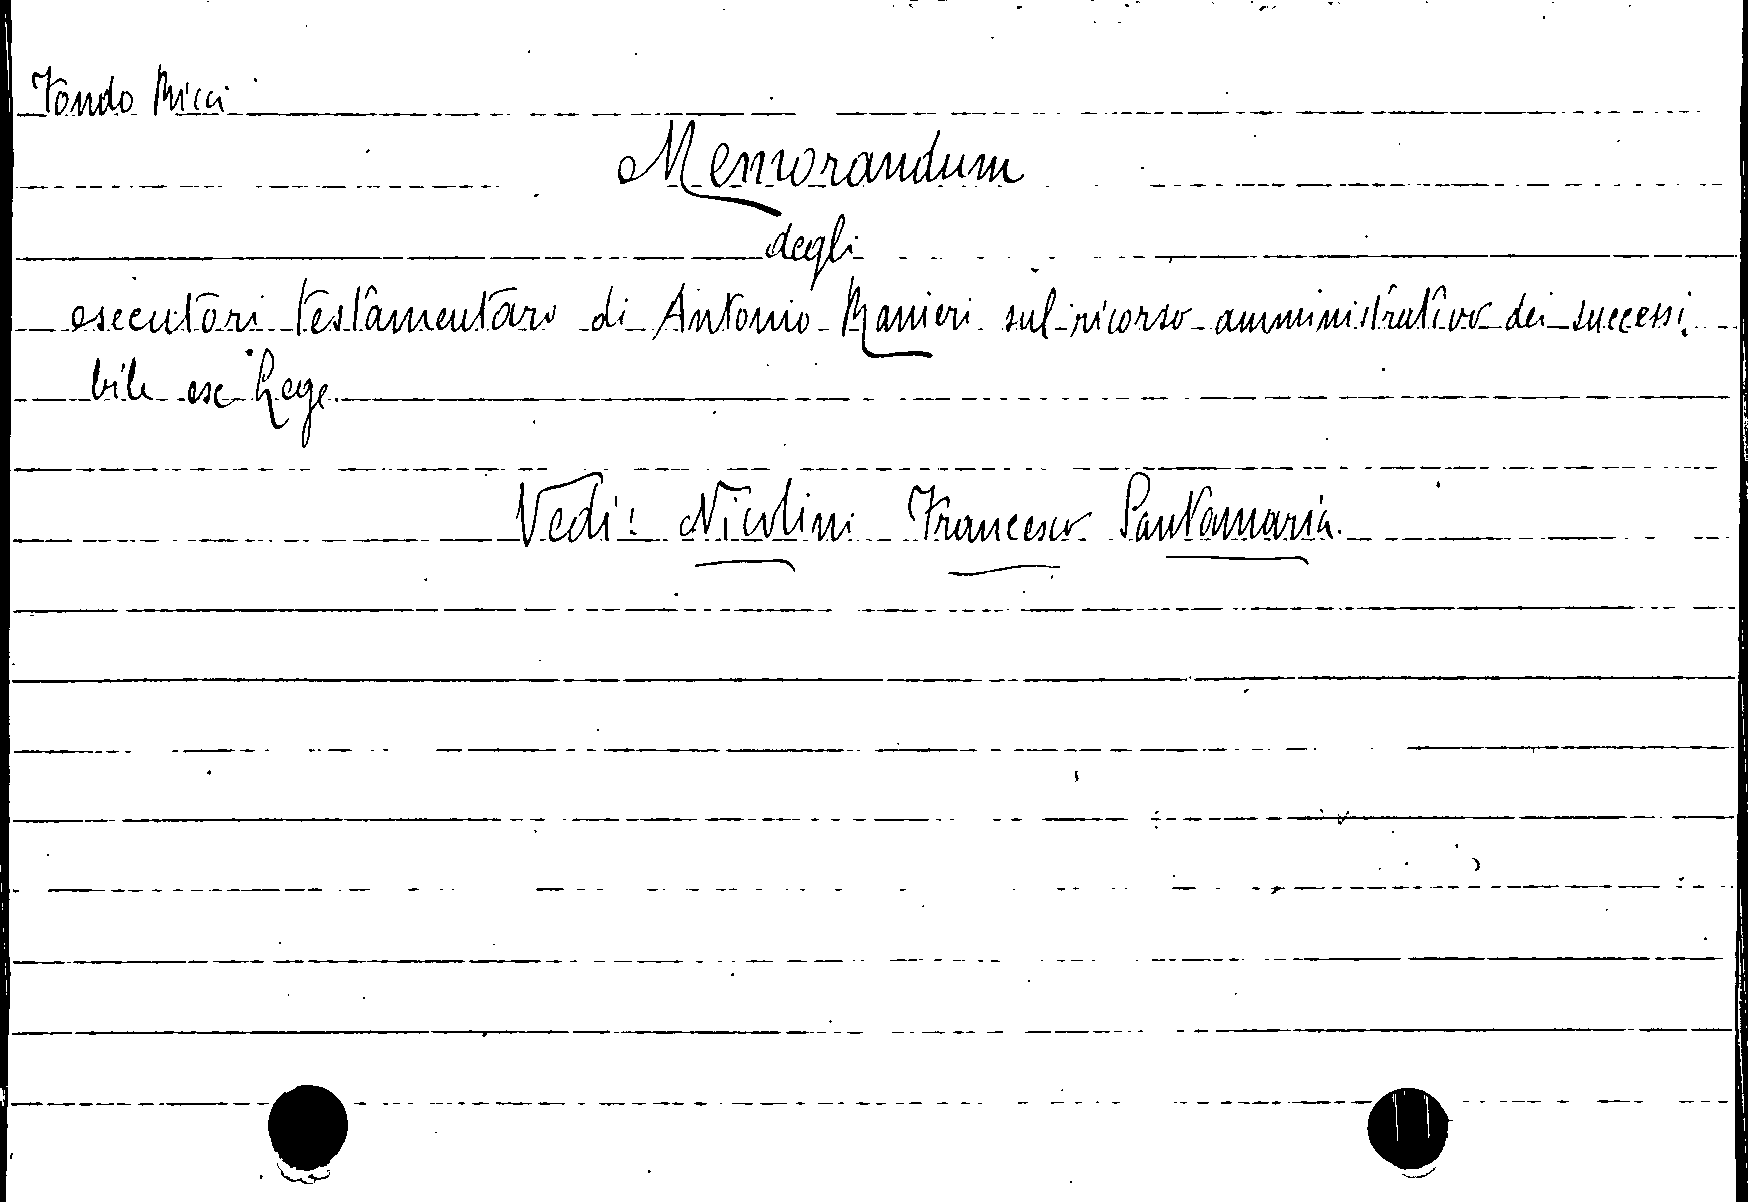 Fondo Ricci
Memorandum
degli
esecutori testamentaro di Antonio Ranieri sul ricorso amministrativo dei successi
bile ex Lege.
Vedi: Nicolini Francesco Santamaria.